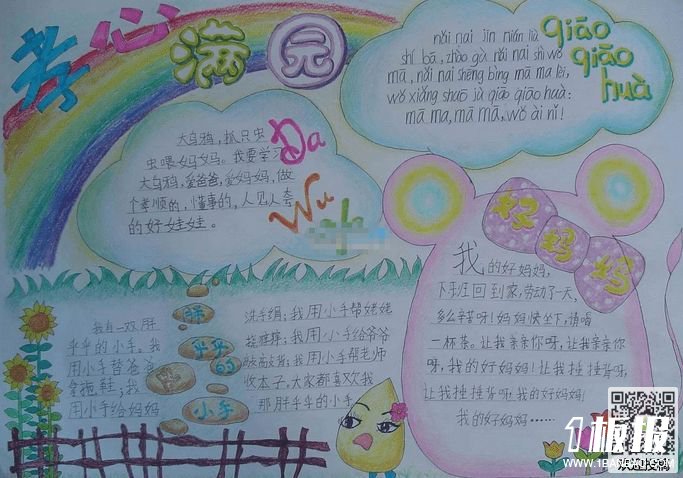 孝心满园
大乌鸦，抓只虫
虫喂妈妈。我要学习
大乌鸦，爱爸爸，爱妈妈，做
个孝顺的，懂事的，人见人夸
的好娃娃。
Da
Wu
qiāo
qiāo
huà
nǎi nai jīn nián liù
shí bā, zhào gù nǎi nai shì wǒ
mā, nǎi nai shēng bìng mā ma lèi,
wǒ xiǎng shuō jù qiāo qiāo huà:
mā ma, mā mā, wǒ ài nǐ!
好妈妈
我的好妈妈，
下班回到家，劳动了一天，
多么辛苦呀！妈妈快坐下，请喝
一杯茶。让我亲亲你呀，让我亲亲你
呀，我的好妈妈！让我捶捶背呀，
让我捶捶背呀，我的好妈妈！
我的好妈妈……
胖
乎乎
的
小手
我有一双胖
乎乎的小手。我
用小手替爸爸
拿拖鞋；我
用小手给妈妈
洗手绢；我用小手帮姥姥
挠痒痒；我用小手给爷爷
我用小手帮老师
收本子，大家都喜欢我
那胖乎乎的小手。
1板报
WWW.1BANBAO.COM
欢迎投稿